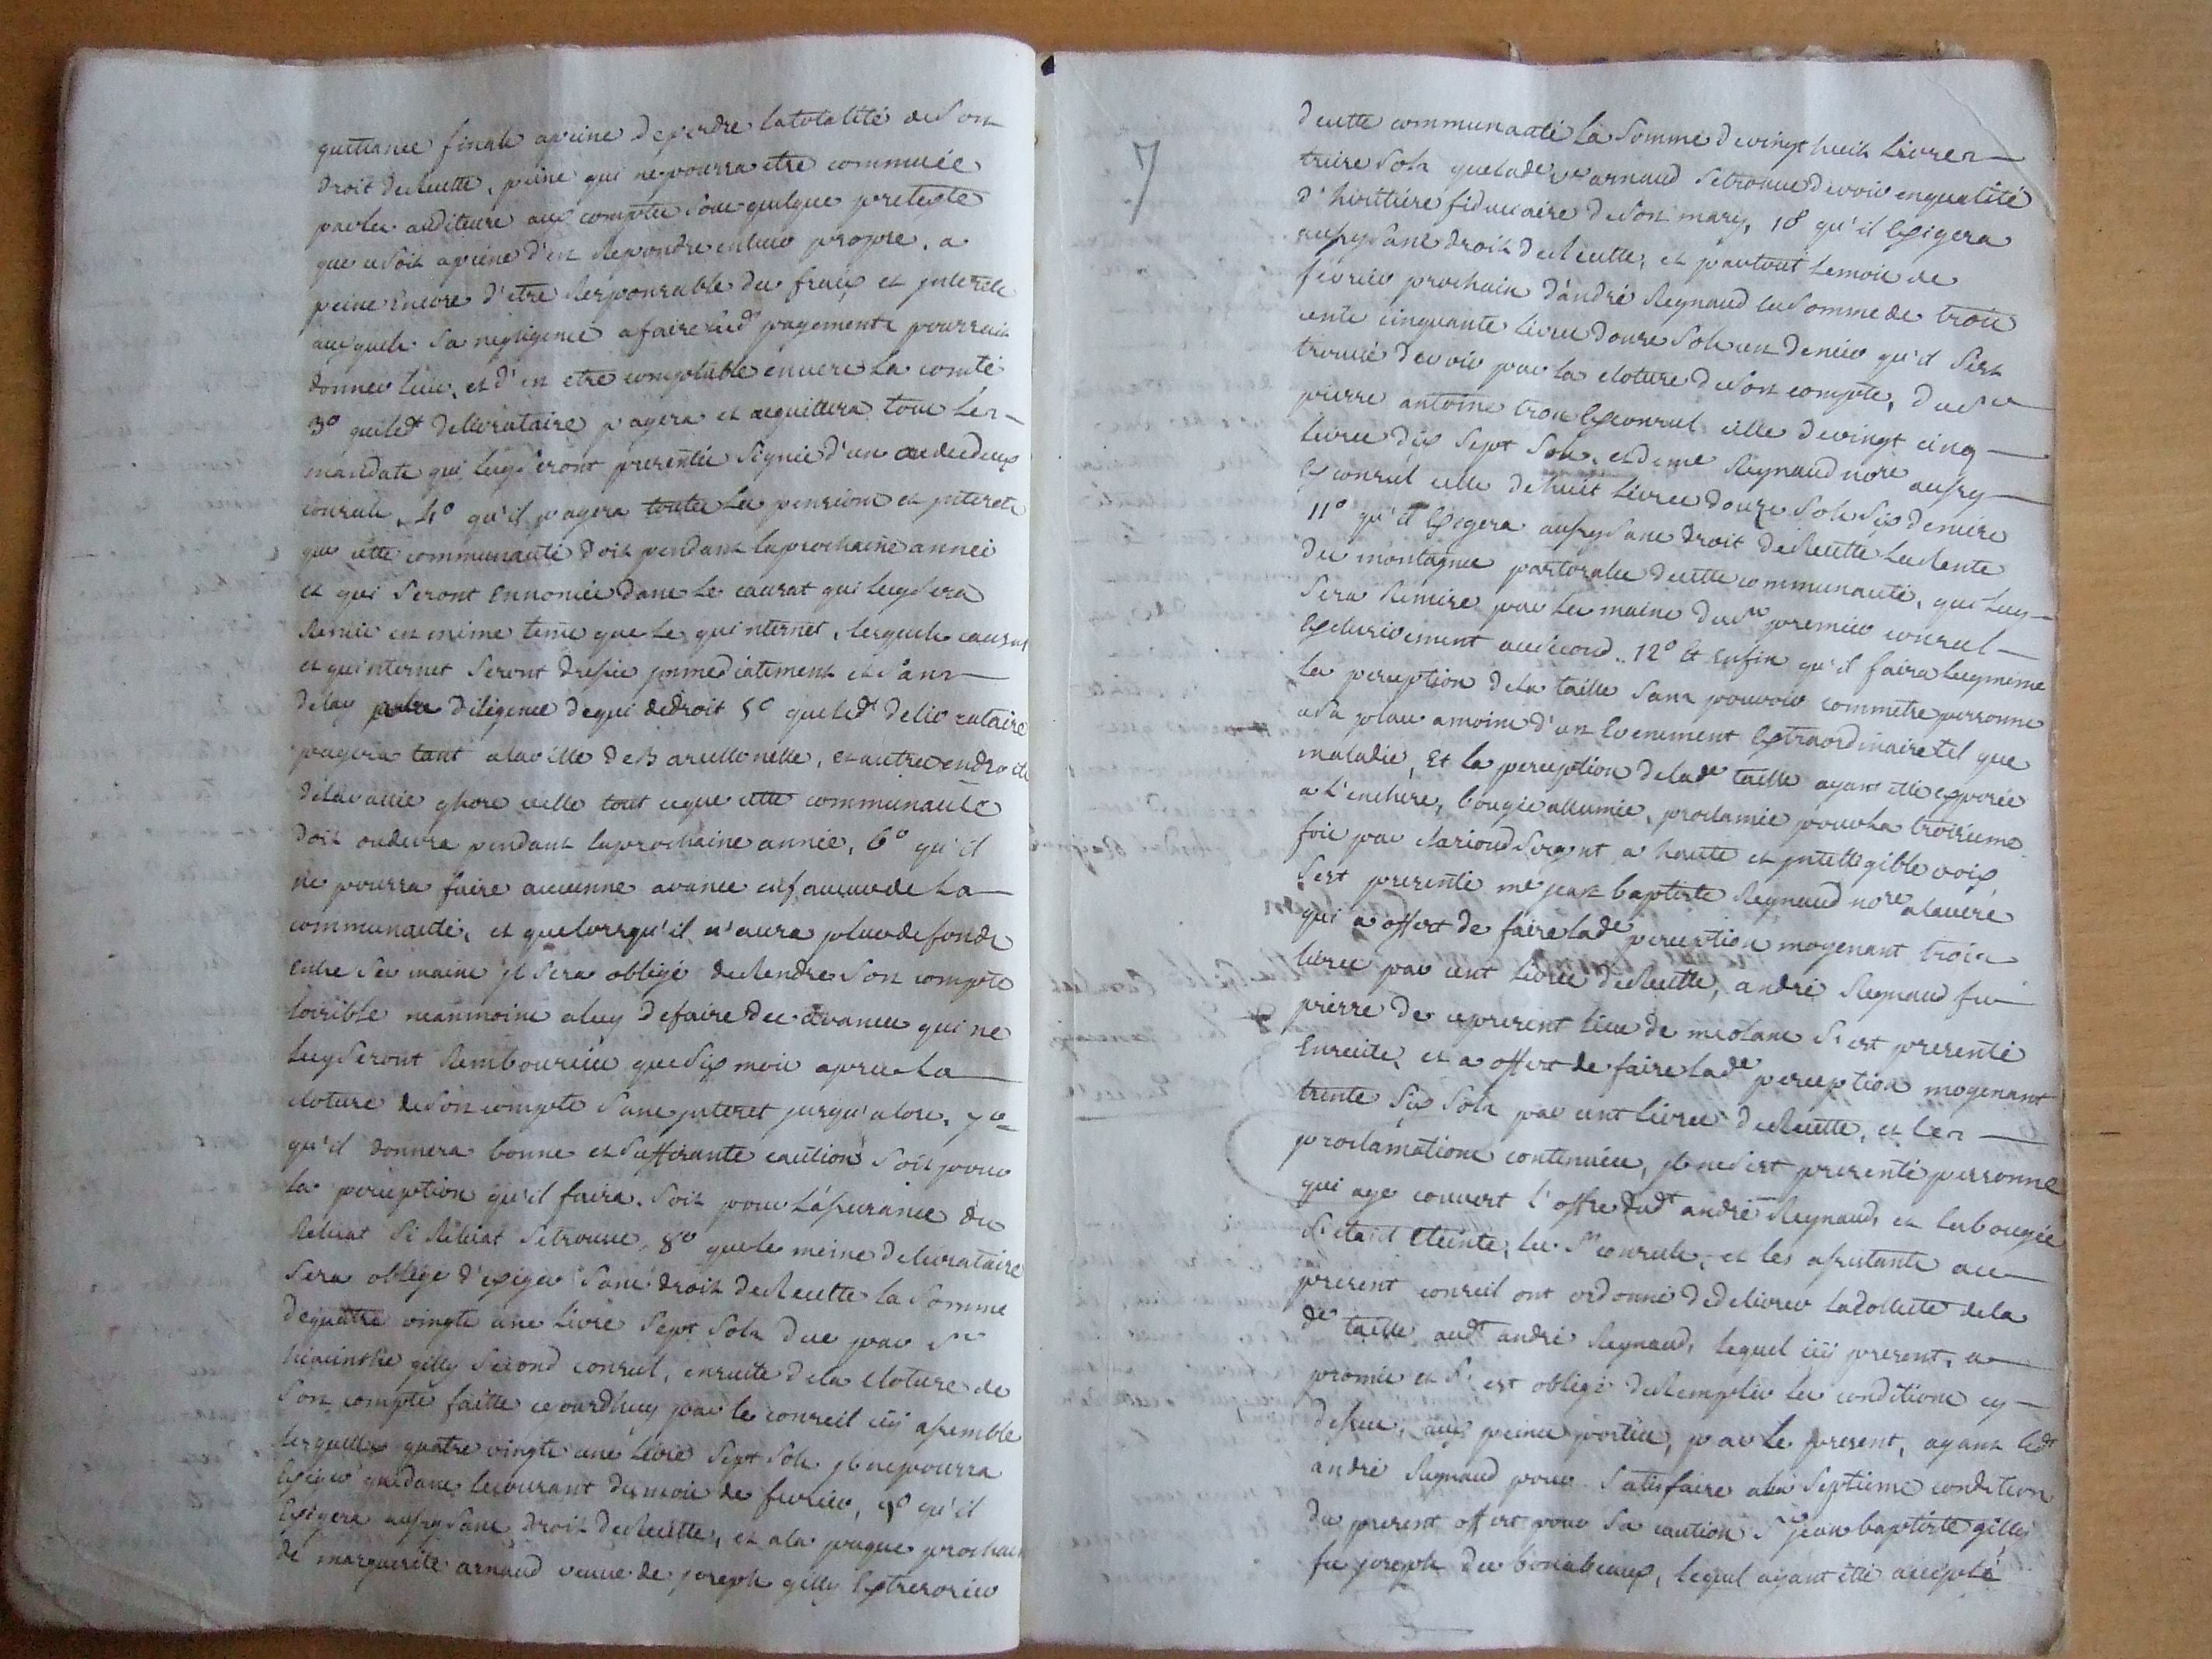 quittance finale a peine de perdre la totalité de Son
droit de Recette, peine qui ne pourra etre commuée
par les auditeurs aux comptes Sous quelque pretexte
que ce Soit a peine d'en Repondre en leur propre, a
peine Encore d'etre Responsable des fraix et interets
auxquels Sa negligence a faire lesd.ts payements pourroit
donner lieu, et d'en etre comptable envers la comté
3° que led.t delivrataire payera et acquittera tous les
mandats qui luy Seront presentés Signés d'un ou des deux
consuls, 4° qu'il payera toutes les pensions et interets
que cette communauté doit pendant la prochaine année
et qui Seront Ennoncés dans le cazrat qui luy Sera
Remis en même tems que le quinternet, lesquels cazrat
et quinternet Seront dressés immediatement et Sans
delay par les diligence de qui de droit 5° que led.t delivrataire
payera tant a la ville de Barcellonette, et autres endroits
de la vallée q hors icelle tout ce que cette communauté
doit ou devra pendant la prochaine année, 6° qu'il
ne pourra faire aucunne avance en faveur de La
communauté, et que lorsqu'il n'aura plus de fonds
Entre Ses mains il Sera obligé de Rendre Son compte
loisible neanmoins a luy de faire des avances qui ne
luy Seront Remboursées que Six mois apres La
cloture de Son compte Sans interet jusqu'alors, 7°
qu'il donnera bonne et Suffisante caution Soit pour
la perception qu'il faira, Soit pour l'assurance du
Reliqat Si Reliqat Se trouve, 8° que le même delivrataire
Sera obligé d'exiger Sans droit de Recette la Somme
de quatre vingts une Livre Sept Sols due par S.r
hiacinthe gilly Second consul, ensuite de la Cloture de
Son compte faitte ce jourdhuy par le conseil icy assemblé
lesquelles quatre vingts une Livre Sept Sols il ne pourra
Exiger que dans le courant du mois de fevrier, 9° qu'il
Exigera aussy Sans droit de Recette, et a la paque prochaine
de marguerite arnaud veuve de joseph gilly Extresorier
7
de cette communauté la Somme de vingt huit Livres
treize Sols que lad.e v.e arnaud Se trouve devoir en qualité
d'hiritiere fiduciaire de Son mary, 10° qu'il Exigera
aussy Sans droit de Recette, et par tout le mois de
fevrier prochain d'andré Reynaud la Somme de trois
cents cinquante Livres douze Sols un denier qu'il S'est
trouvé devoir par la cloture de Son compte, du S.r
pierre antoine tron Exconsul celle de vingt cinq
livres dix Sept Sols, et de me Reynaud no.re aussy
Exconsul celle de huit Livres douze Sols Six deniers
11° qu'il Exigera aussy Sans droit de Recette La Rente
des montagnes pastorales de cette communauté, qui luy
Sera Remise par les mains du S.r premier consul
Exclusivement au Second. 12° Et Enfin qu'il faira luy meme
la perception de la taille Sans pouvoir commetre personne
a Sa place a moins d'un Evenement Extraordinaire tel que
maladie, Et la perception de lad.e taille ayant eté exposée
a l'enchere, bougie allumée, proclamée pour la troisieme
fois par clariond Sergent a haute et intelligible voix,
S'est presenté me jean baptiste Reynaud no.re a laverq
qui a offert de faire lad.e perception moyenant trois
livres par cent Livres de Recette, andré Reynaud feu
pierre de ce present Lieu de meolans S'est presenté
Ensuite, et a offert de faire lad.e perception moyenant
trente Six Sols par cent livres de Recette, et les
proclamations continuées, il ne S'est presenté personne
qui aye couvert l'offre dud.t andré Reynaud, et la bougie
S'etant Eteinte, les S.rs consuls, et les assistants au
present conseil ont ordonné de delivrer la Collecte de la
d.e taille aud.t andré Reynaud, lequel icy present, a
promis et S'est obligé de Remplir les conditions cy
dessus, aux peines portées, par le present, ayant led.t
andré Reynaud pour Satisfaire a la Septieme condition
du present offert pour Sa caution S.r jean baptiste gilly
feu joseph des boniabeaux, lequel ayant été accepté